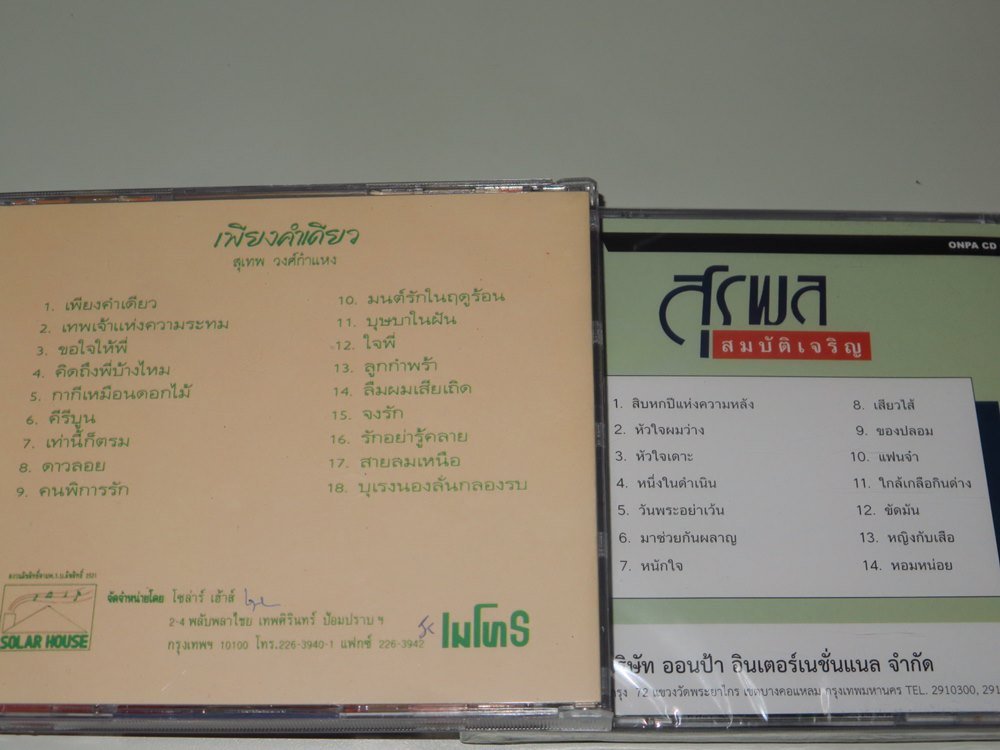 เพียงคำเดียว
สุเทพ วงศ์กำแหง
1. เพียงคำเดียว
2. เทพเจ้าแห่งความระทม
3. ขอใจให้พี่
4. คิดถึงพี่บ้างไหม
5. กากีเหมือนดอกไม้
6. คีรีบูน
7. เท่านี้ก็ตรม
8. ดาวลอย
9. คนพิการรัก
10. มนต์รักในฤดูร้อน
11. บุษบาในฝัน
12. ใจพี่
13. ลูกกำพร้า
14. ลืมผมเสียเถิด
15. จงรัก
16. รักอย่ารู้คลาย
17. สายลมเหนือ
18. บุเรงนองลั่นกลองรบ
SOLAR HOUSE
จัดจำหน่ายโดย โซล่าร์ เฮ้าส์
2-4 พลับพลาไชย เทพศิรินทร์ ป้อมปราบ ฯ
กรุงเทพฯ 10100 โทร.226-3940-1 แฟกซ์ 226-3942
เมโทร
ONPA CD
สุรพล
สมบัติเจริญ
1. สิบหกปีแห่งความหลัง
2. หัวใจผมว่าง
3. หัวใจเดาะ
4. หนึ่งในดำเนิน
5. วันพระอย่าเว้น
6. มาช่วยกันผลาญ
7. หนักใจ
8. เสียวไส้
9. ของปลอม
10. แฟนจ๋า
11. ใกล้เกลือกินด่าง
12. ขัดมัน
13. หญิงกับเสือ
14. หอมหน่อย
ริษัท ออนป้า อินเตอร์เนชั่นแนล จำกัด
72 แขวงวัดพระยาไกร เขตบางคอแหลม กรุงเทพมหานคร TEL. 2910300, 291